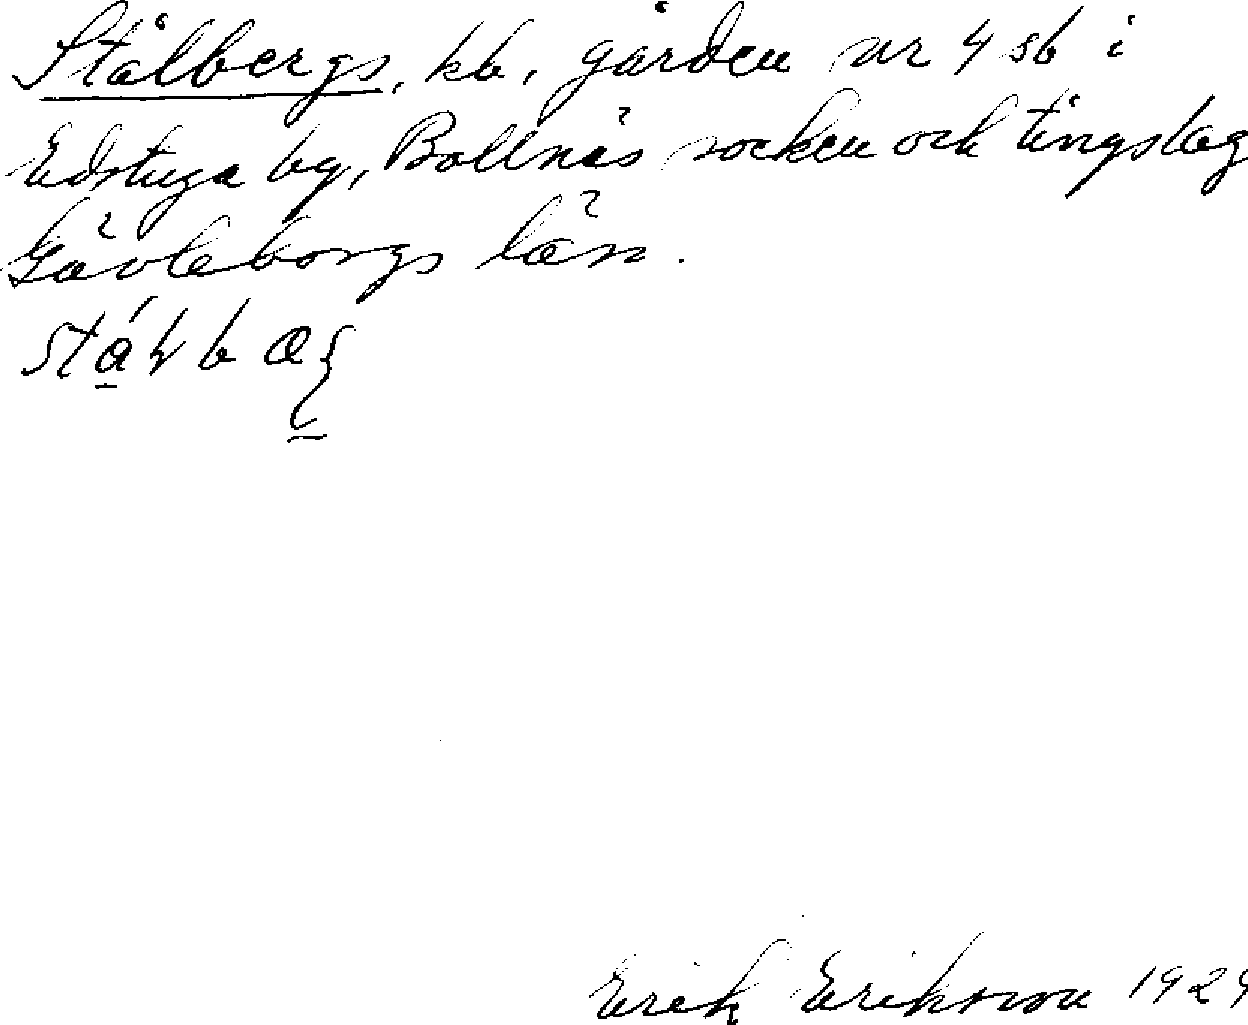 Stålbergs, kb, gården nr 4 sb i
Edstuga by, Bollnäs socken och tingslag
Gävleborgs län.
Erik Eriksson 1929